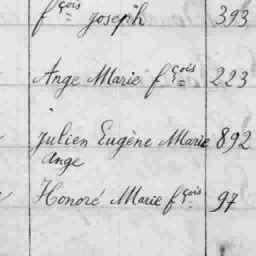 fçois Joseph 393
Ange Marie fçois 223
Julien Eugène Marie 892
Ange
Honoré Marie fçois 97